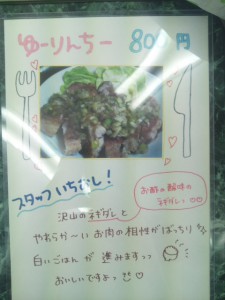 ゆーりんちー 800円
スタッフいちおし!
お酢の酸味の
ネギダレ♡♡
沢山のネギダレと
やわらか〜いお肉の相性がばっちり
白いごはんが進みますっっ
おいしいですよっ